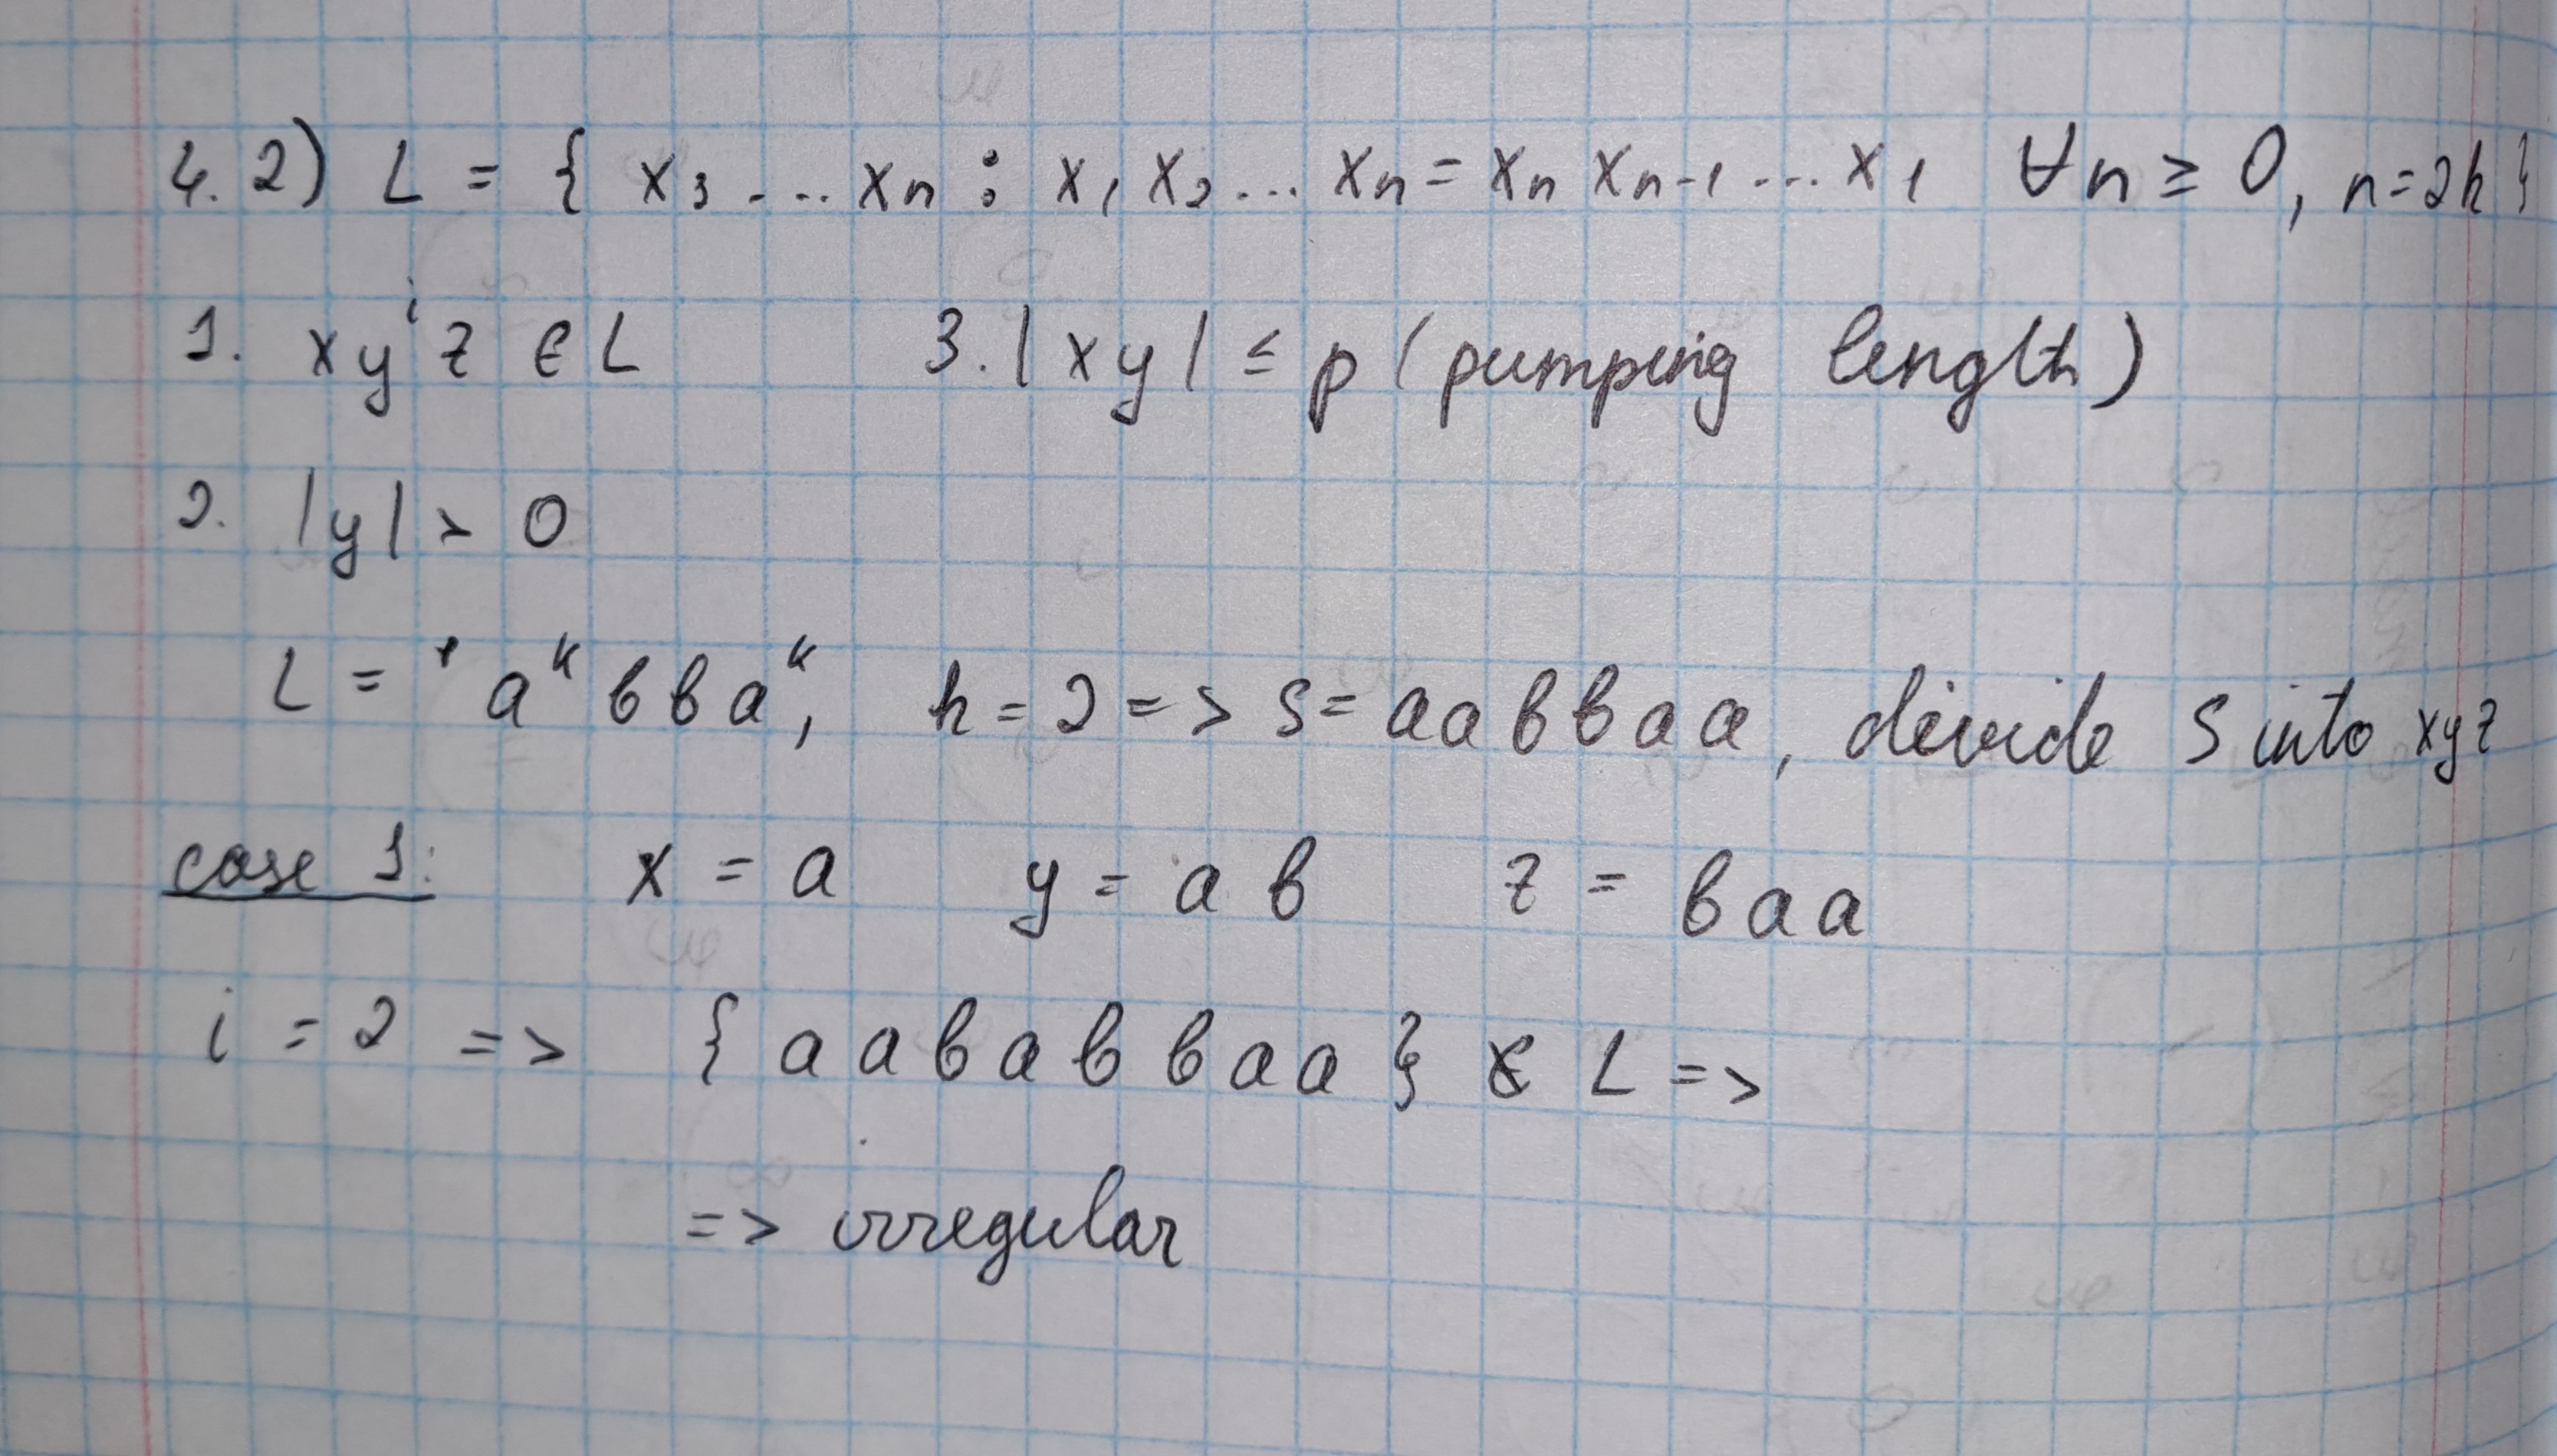 4. 2) L = { x₃ ... xₙ : x₁ x₂ ... xₙ = xₙ xₙ₋₁ ... x₁ ∀n ≥ 0, n=2k }
1. xyⁱz ∈ L 3. |xy| ≤ p (pumping length)
2. |y| > 0
L = aᵏ b b aᵏ, k = 2 => S = aabbaa, divide S into xyz
case 1: x = a y = ab z = baa
i = 2 => { aababbaa } ∉ L =>
=> irregular